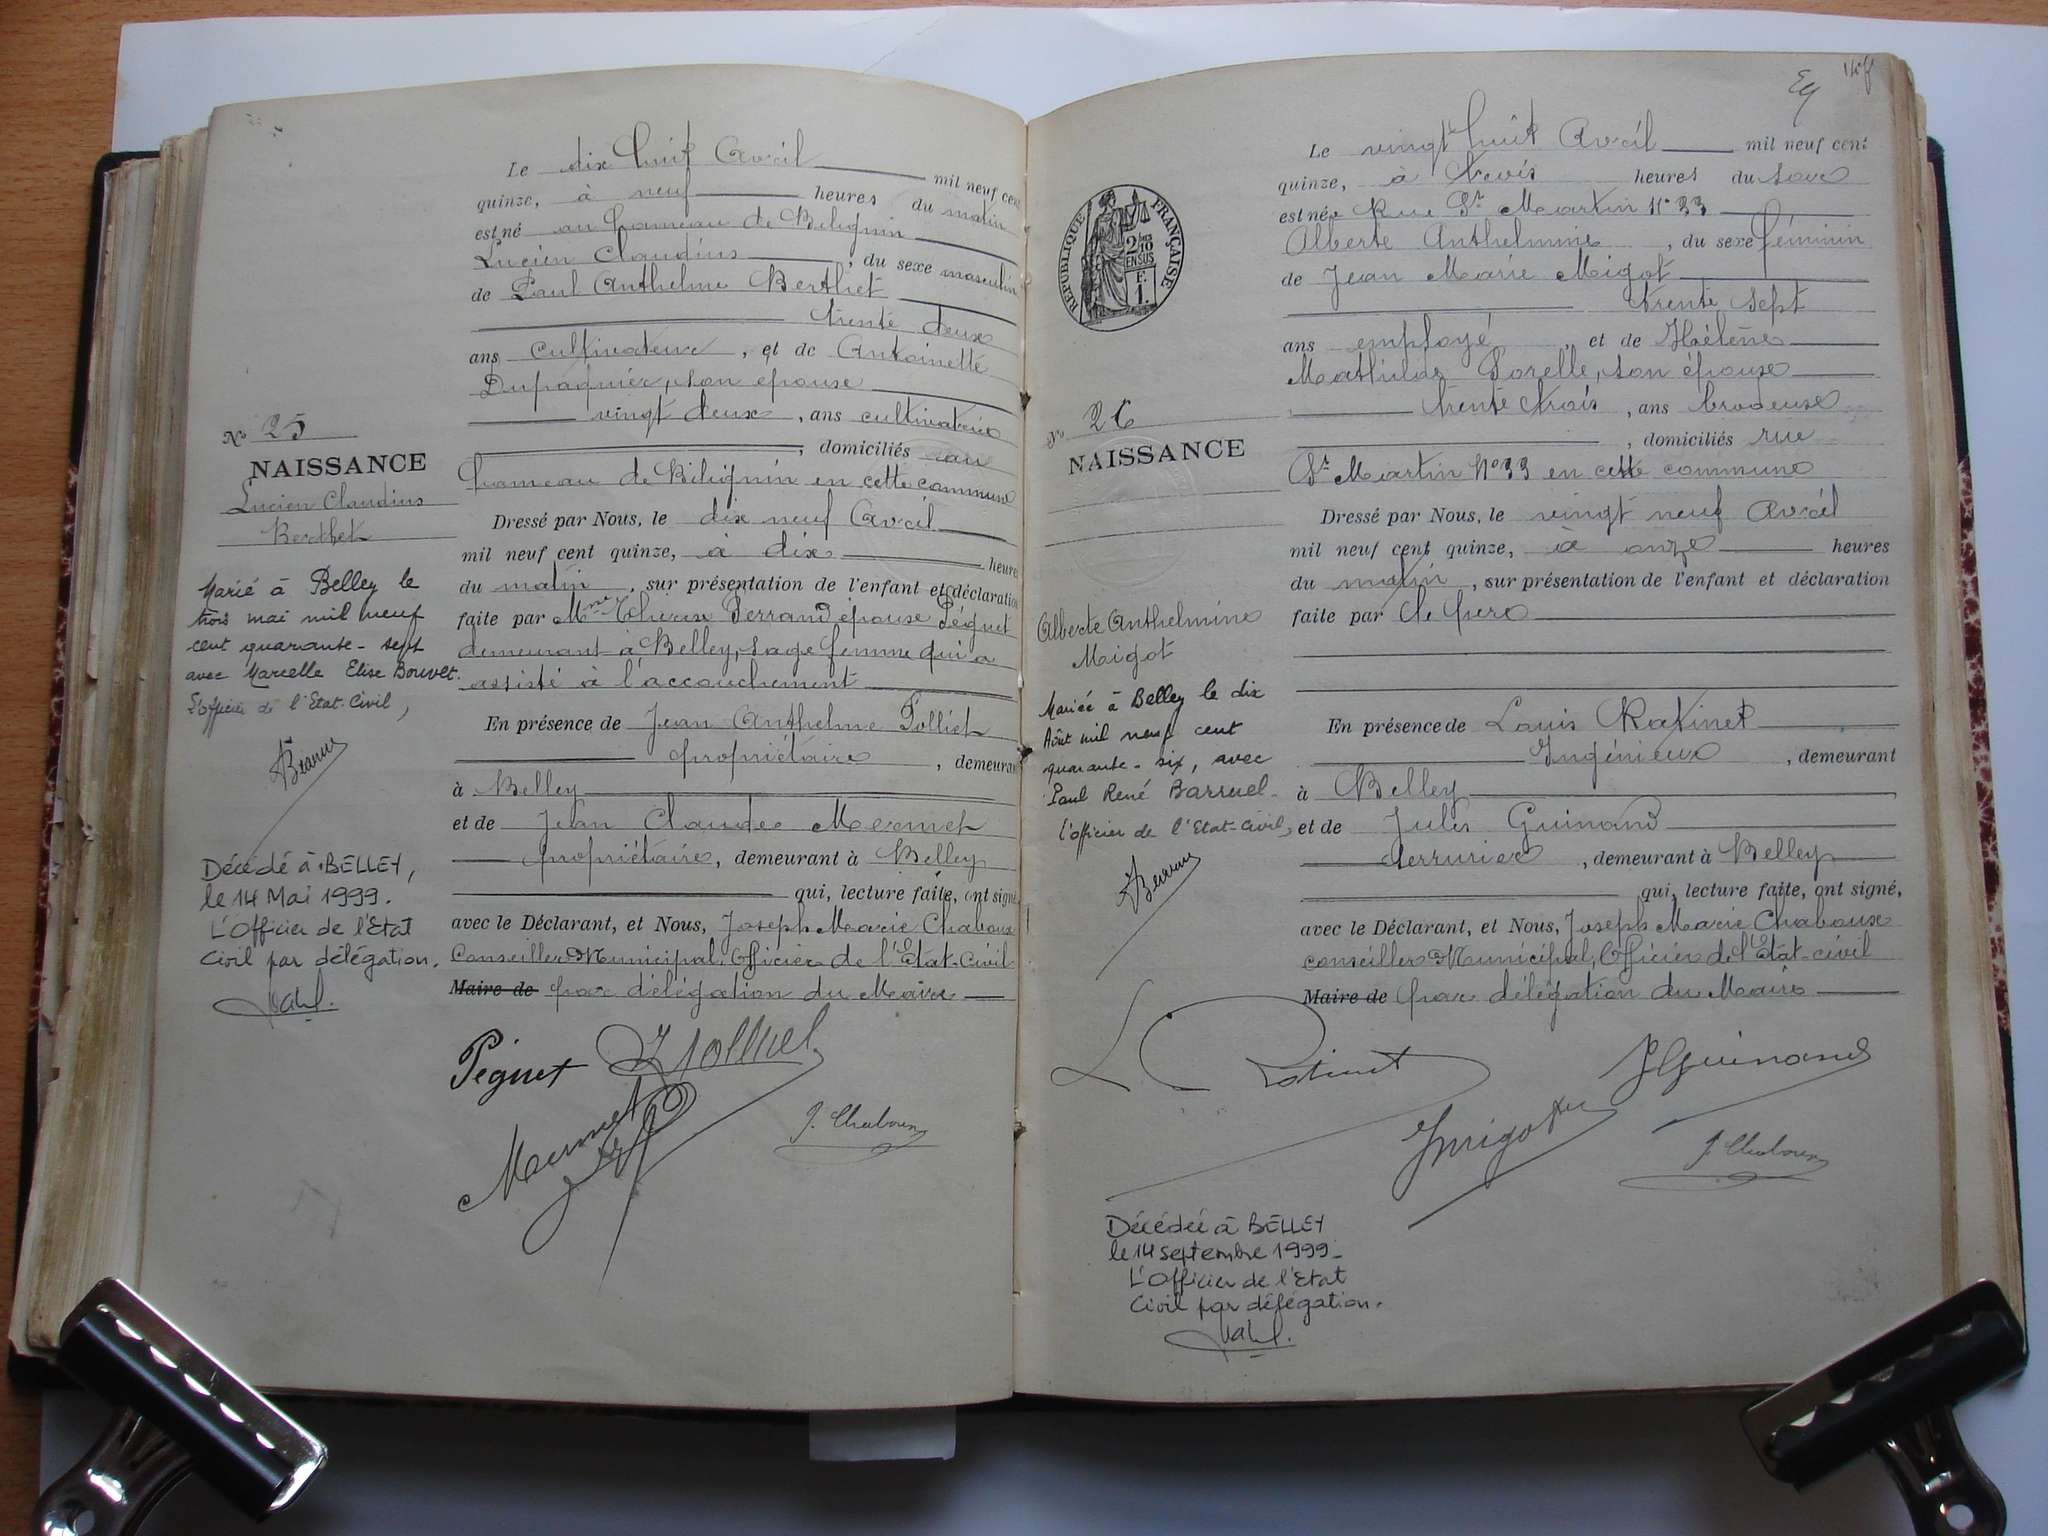 Le dix huit Avril mil neuf cent
quinze, à neuf heures du matin
est né au hameau de Bilignin
Lucien Claudius, du sexe masculin
de Paul Anthelme Berthet
trente deux
ans cultivateur, et de Antoinette
Dupaquier, son épouse
vingt deux, ans cultivatrice
, domiciliés au
hameau de Bilignin en cette commune
Dressé par Nous, le dix neuf Avril
mil neuf cent quinze, à dix heures
du matin, sur présentation de l'enfant et déclaration
faite par Mme Thérèse Perrand épouse Péguet
demeurant à Belley, sage femme qui a
assisté à l'accouchement
En présence de Jean Anthelme Tolliet
propriétaire, demeurant
à Belley
et de Jean Claude Mermet
propriétaire, demeurant à Belley
qui, lecture faite, ont signé
avec le Déclarant, et Nous, Joseph Marie Chaboux
Conseiller Municipal, Officier de l'Etat-Civil
Maire de par délégation du Maire
Péguet
Mermet
J. Chaboux
No 25
NAISSANCE
Lucien Claudius
Berthet
Marié à Belley le
trois mai mil neuf
cent quarante-sept
avec Marcelle Elise Bouvet.
L'officier de l'Etat-Civil,
Décédé à BELLEY,
le 14 Mai 1999.
L'Officier de l'Etat
Civil par délégation.
RÉPUBLIQUE FRANÇAISE
2/10
EN SUS
F.
1.
Le vingt huit Avril mil neuf cent
quinze, à trois heures du soir
est née Rue St Martin No 33
Alberte Anthelmine, du sexe féminin
de Jean Marie Migot
trente sept
ans employé, et de Hélène
Mathilde Sorelle, son épouse
trente trois, ans brodeuse
, domiciliés rue
St Martin No 33 en cette commune
Dressé par Nous, le vingt neuf Avril
mil neuf cent quinze, à onze heures
du matin, sur présentation de l'enfant et déclaration
faite par le père
En présence de Louis Ratinet
Ingénieur, demeurant
à Belley
et de Jules Guinand
serrurier, demeurant à Belley
qui, lecture faite, ont signé,
avec le Déclarant, et Nous, Joseph Marie Chaboux
conseiller Municipal, Officier de l'Etat-civil
Maire de par délégation du Maire
L Ratinet
J Guinand
J Migot
J. Chaboux
No 26
NAISSANCE
Alberte Anthelmine
Migot
Mariée à Belley le dix
Août mil neuf cent
quarante-six, avec
Paul René Barruel
l'officier de l'Etat-Civil,
Décédée à BELLEY
le 14 septembre 1999.
L'Officier de l'Etat
Civil par délégation.